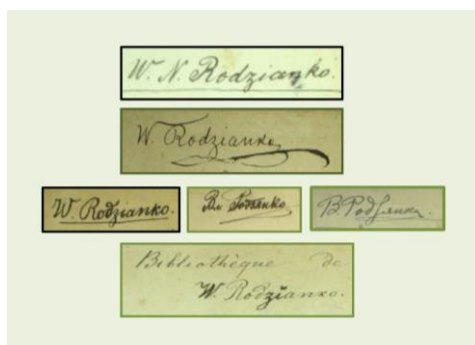 W. N. Rodzianko.
W. Rodzianko
W. Rodzianko.
Вл. Родзянко
В Родзянко.
Bibliothèque de
W. Rodzianko.